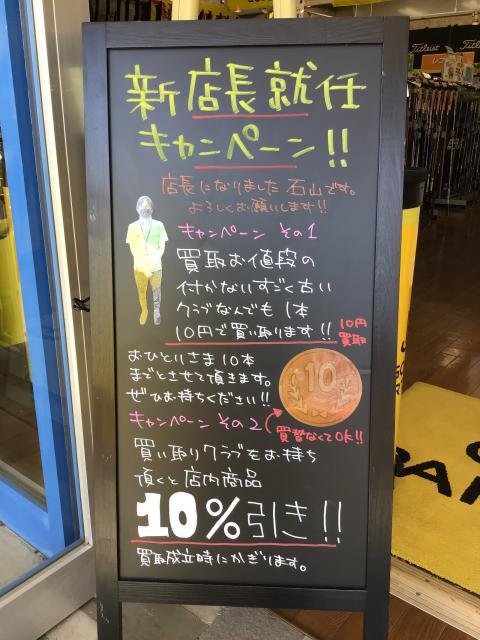 新店長就任
キャンペーン!!
店長になりました 石山です。
よろしくお願いします!!
キャンペーン その1
買取お値段の
付かないすごく古い
クラブなんでも1本
10円で買い取ります!!
10円
買取
おひとりさま10本
までとさせて頂きます。
ぜひお持ちください!!
10
キャンペーン その2
買替なくてOK!!
買い取りクラブをお持ち
頂くと店内商品
10%引き!!
買取成立時にかぎります。
Titleist
Titleist